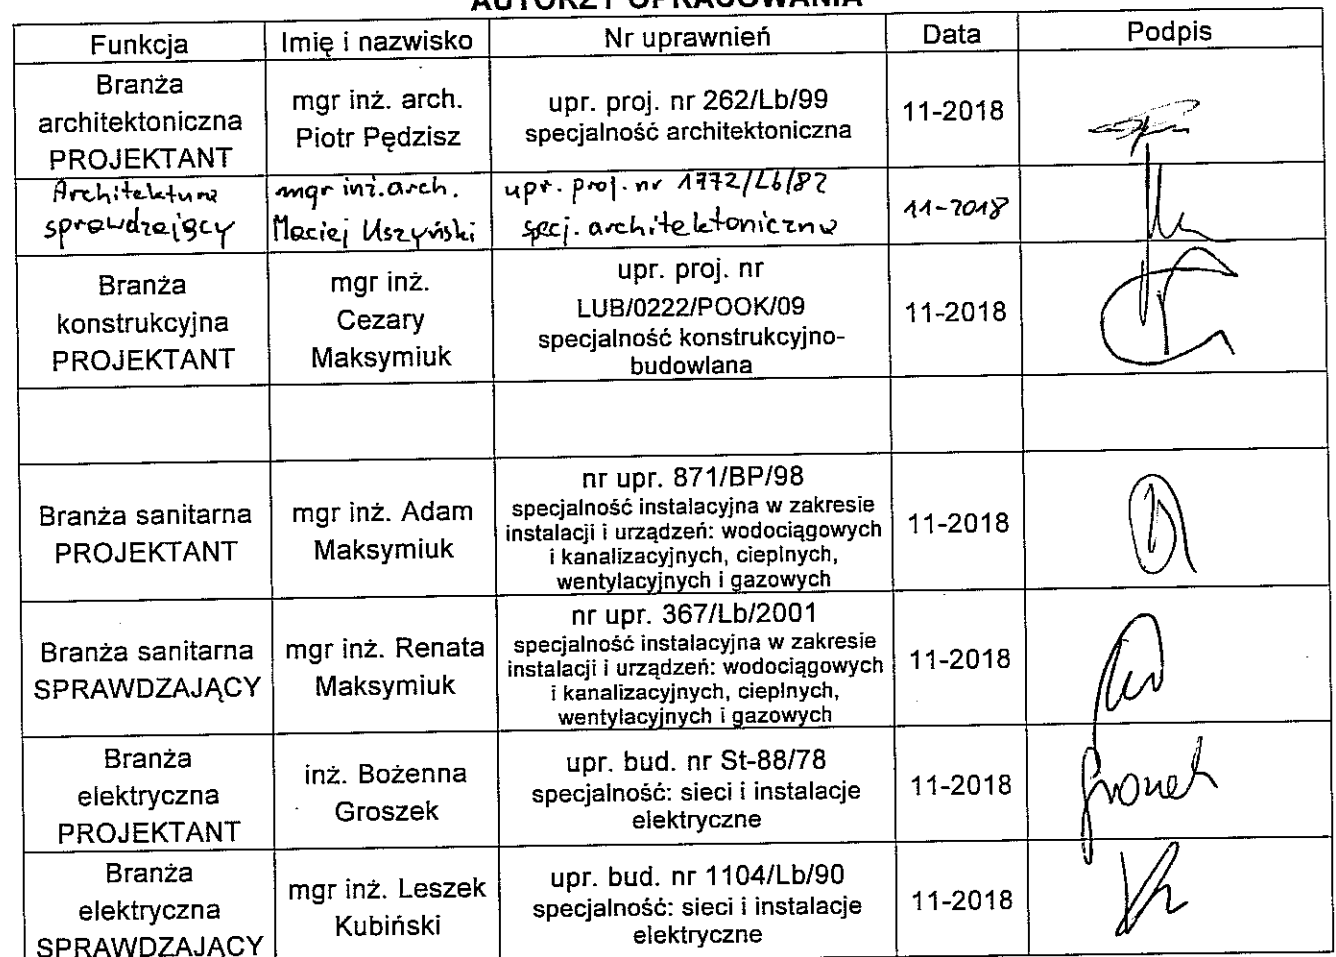 AUTORZY OPRACOWANIA
Funkcja Imię i nazwisko Nr uprawnień Data Podpis
Branża
architektoniczna
PROJEKTANT
mgr inż. arch.
Piotr Pędzisz
upr. proj. nr 262/Lb/99
specjalność architektoniczna
11-2018
Architektura
sprawdzający
mgr inż. arch.
Maciej Uszyński
upr. proj. nr 1772/Lb/82
specj. architektoniczna
11-2018
Branża
konstrukcyjna
PROJEKTANT
mgr inż.
Cezary
Maksymiuk
upr. proj. nr
LUB/0222/POOK/09
specjalność konstrukcyjno-
budowlana
11-2018
Branża sanitarna
PROJEKTANT
mgr inż. Adam
Maksymiuk
nr upr. 871/BP/98
specjalność instalacyjna w zakresie
instalacji i urządzeń: wodociągowych
i kanalizacyjnych, cieplnych,
wentylacyjnych i gazowych
11-2018
Branża sanitarna
SPRAWDZAJĄCY
mgr inż. Renata
Maksymiuk
nr upr. 367/Lb/2001
specjalność instalacyjna w zakresie
instalacji i urządzeń: wodociągowych
i kanalizacyjnych, cieplnych,
wentylacyjnych i gazowych
11-2018
Branża
elektryczna
PROJEKTANT
inż. Bożenna
Groszek
upr. bud. nr St-88/78
specjalność: sieci i instalacje
elektryczne
11-2018
Branża
elektryczna
SPRAWDZAJĄCY
mgr inż. Leszek
Kubiński
upr. bud. nr 1104/Lb/90
specjalność: sieci i instalacje
elektryczne
11-2018